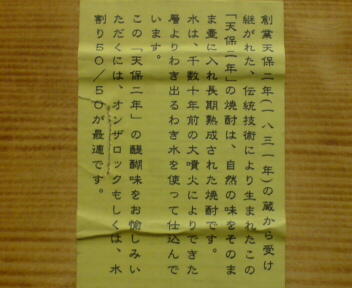 創業天保二年(一八三一年)の蔵から受け
継がれた、伝統技術により生まれたこの
「天保二年」の焼酎は、自然の味をそのま
ま壷に入れ長期熟成された焼酎です。
水は、千数十年前の大噴火によりできた
層よりわき出るわき水を使って仕込んで
います。
この「天保二年」の醍醐味をお愉しみい
ただくには、オンザロックもしくは、水
割り50/50が最適です。